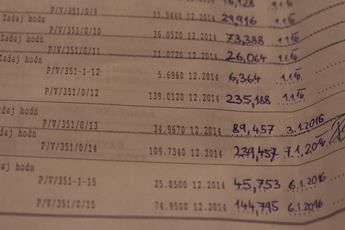 P/V/351/0/9 11.5440 12.2014 29,916 1.1.16
Zadej hodn
P/V/351/0/10 36.0520 12.2014 73,388 1.1.16
Zadej hodn
P/V/351/0/11 11.0720 12.2014 26,064 1.1.16
P/V/351-1-12 5.6960 12.2014 6,364 1.1.16
Zadej hodn
P/V/351/0/12 139.0120 12.2014 235,188 1.1.16
Zadej hodn
P/V/351/0/13 34.9670 12.2014 89,457 3.1.2016
Zadej hodn
P/V/351/0/14 109.7340 12.2014 239,457 7.1.2016
Zadej hodn
P/V/351-1-15 25.8500 12.2014 45,753 6.1.2016
P/V/351/0/15 74.9500 12.2014 144,795 6.1.2016